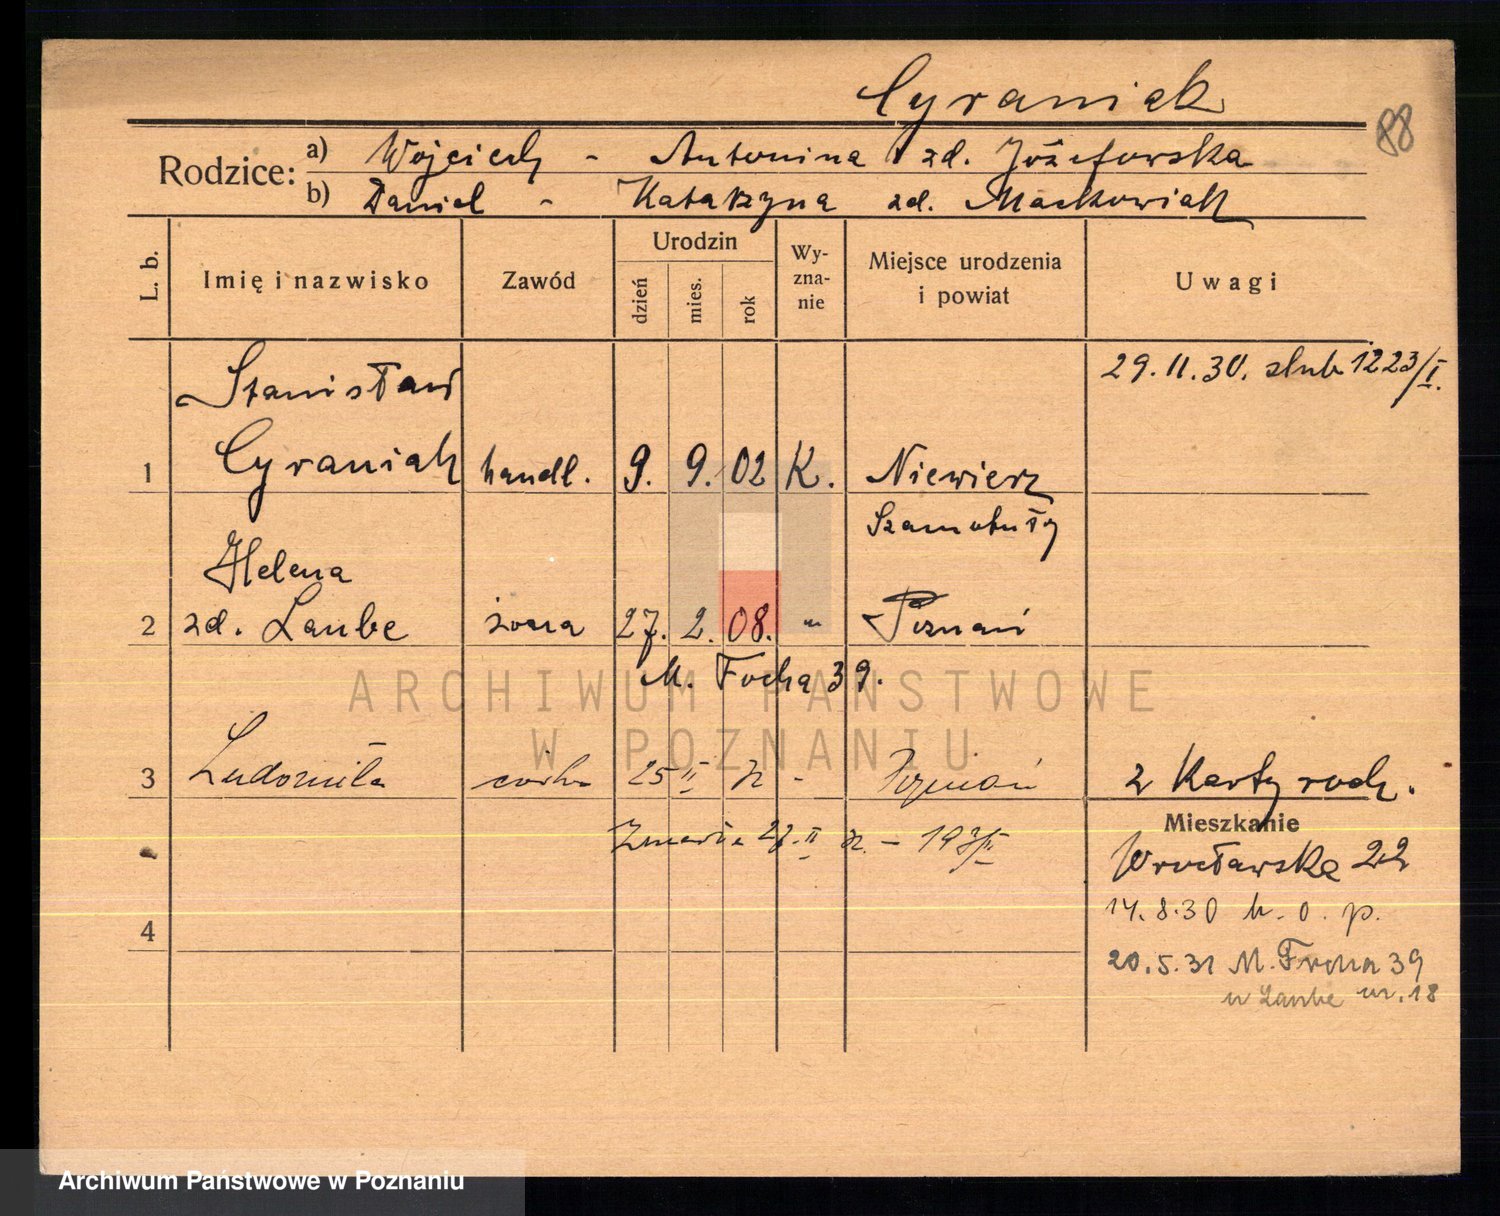 Cyraniak
88
Rodzice: a) Wojciech - Antonina zd. Józefowska
b) Daniel - Katarzyna zd. Maćkowiak
L. b. Imię i nazwisko Zawód Urodzin dzień mies. rok Wy-zna-nie Miejsce urodzenia i powiat Uwagi
29.11.30. slub 1223/I.
Stanisław
1 Cyraniak handl. 9. 9. 02 K. Niewierz
Szamotuły
Helena
2 zd. Laube żona 27. 2. 08. " Poznań
M. Focha 39.
ARCHIWUM PAŃSTWOWE
W POZNANIU
3 Ludomiła córka 25 II - Poznań 2 Karty rodz.
Mieszkanie
Zmarła 27. II
Wrocławska 22
14.8.30 h. o. p.
4
20.5.31 M. Focha 39
u Laube nr. 18
Archiwum Państwowe w Poznaniu